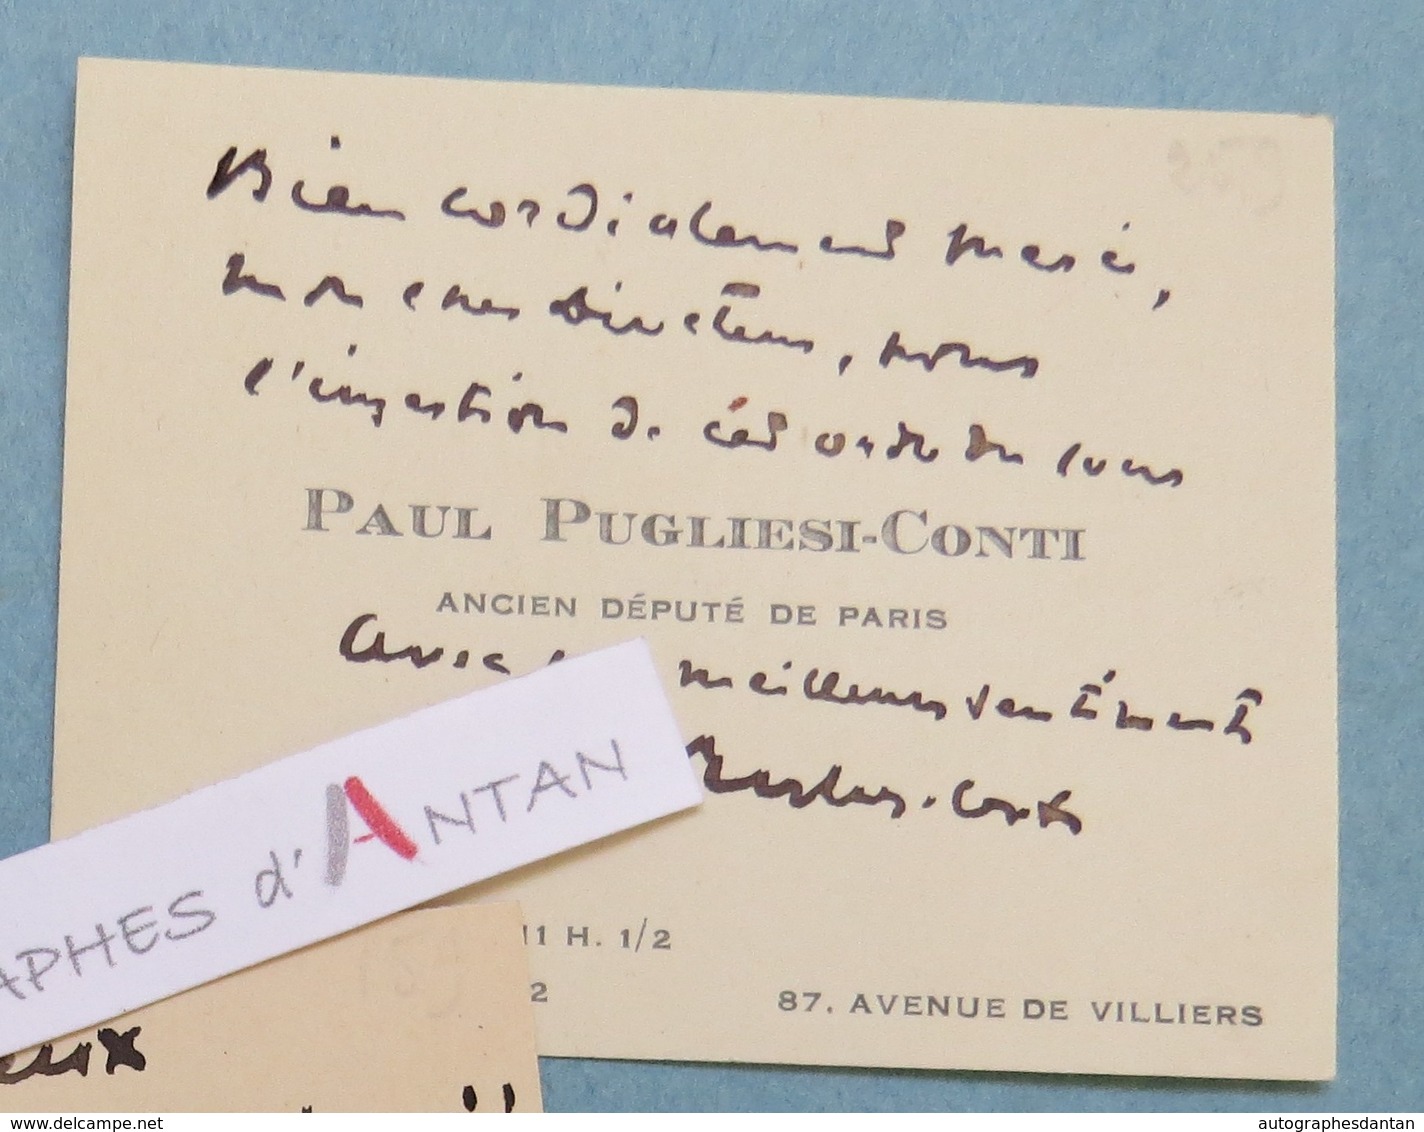 Bien cordialement merci,
mon cher Directeur, pour
l'insertion de cet ordre du jour
PAUL PUGLIESI-CONTI
ANCIEN DÉPUTÉ DE PARIS
Avec meilleurs sentiments
Conti
APHES d'ANTAN
11 H. 1/2
2
87. AVENUE DE VILLIERS
eux
!!
www.delcampe.net
autographesdantan